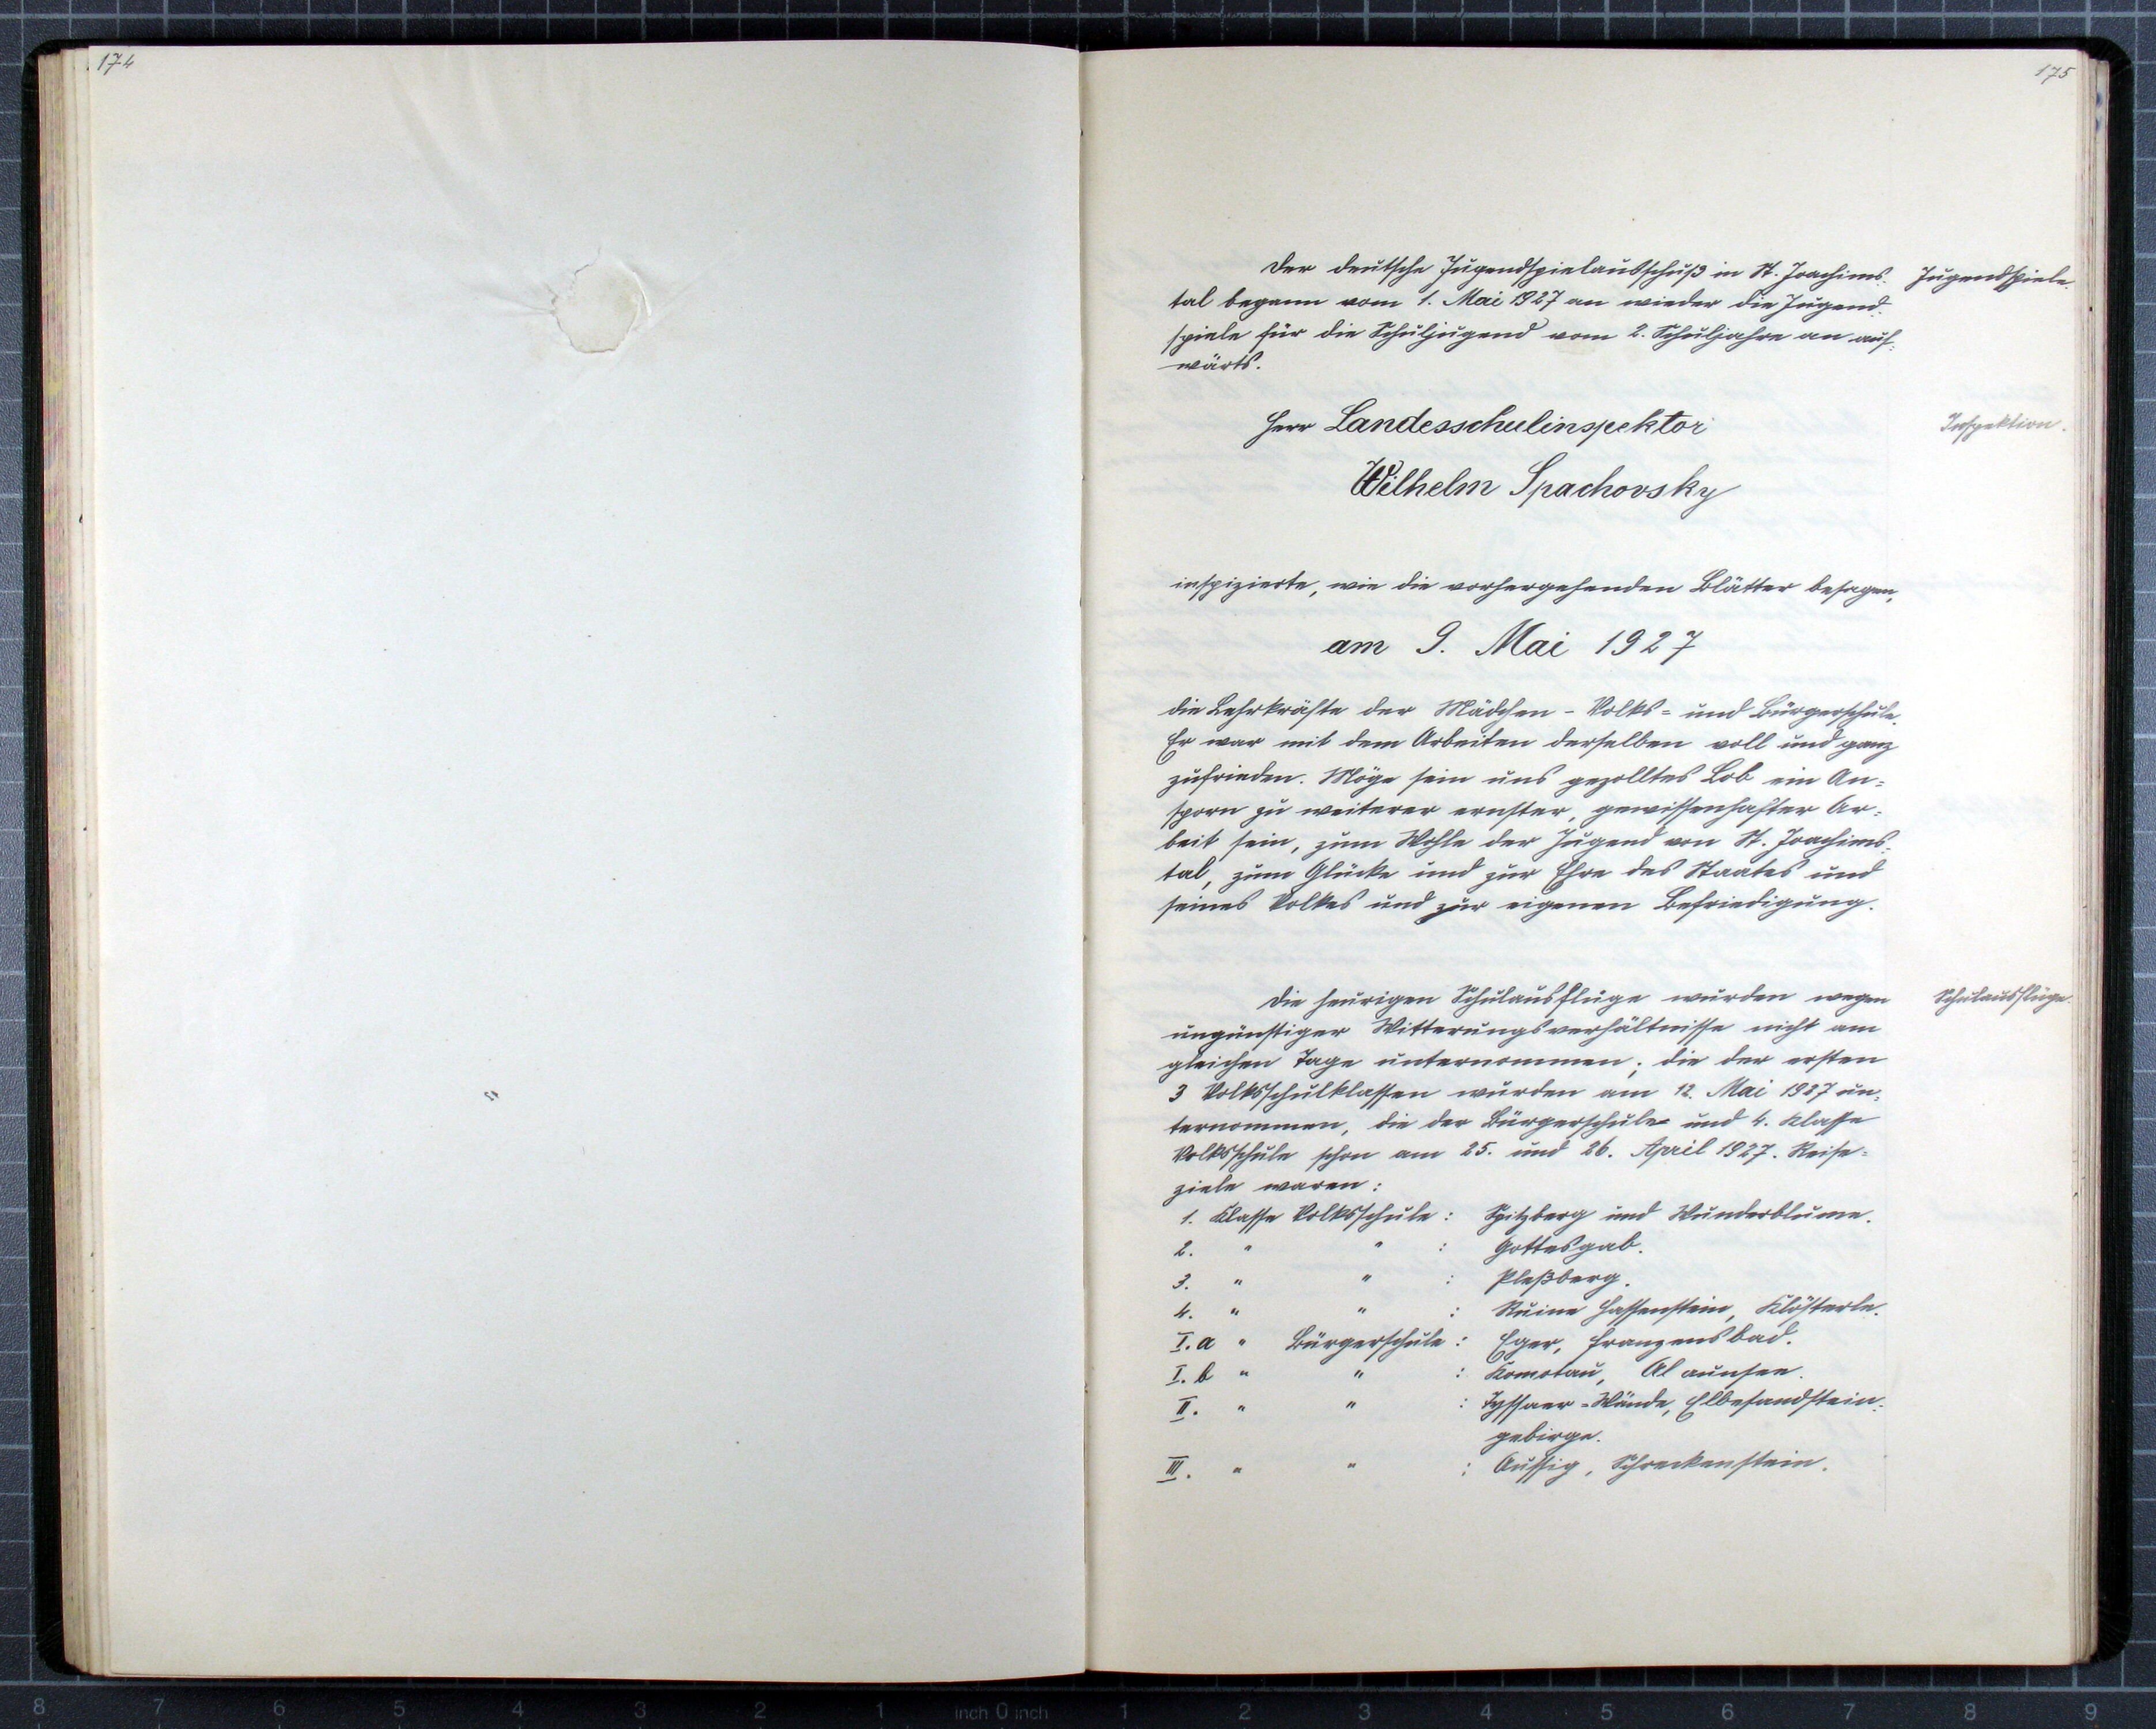 174
175
Der deutsche Jugendspielausschuß in St. Joachims-
Jugendspiele.
tal begann vom 1. Mai 1927 an wieder die Jugend-
spiele für die Schuljugend vom 2. Schuljahre an auf-
wärts.
Herr Landesschulinspektor
Inspektion.
Wilhelm Spachovsky
inspizierte, wie die vorhergehenden Blätter besagen,
am 9. Mai 1927
die Lehrkräfte der Mädchen- Volks= und Bürgerschule.
Er war mit dem Arbeiten derselben voll und ganz
zufrieden. Möge sein uns gezolltes Lob ein An=
sporn zu weiterer ernster, gewissenhafter Ar=
beit sein, zum Wohle der Jugend von St. Joachims=
tal, zum Glücke und zur Ehre des Staates und
seines Volkes und zur eigenen Befriedigung.
Die heurigen Schulausflüge wurden wegen
Schulausflüge.
ungünstiger Witterungsverhältnisse nicht am
gleichen Tage unternommen; die der ersten
3 Volksschulklassen wurden am 12. Mai 1927 un=
ternommen, die der Bürgerschule und 4. Klasse
Volksschule schon am 25. und 26. April 1927. Reise=
ziele waren:
1. Klasse Volksschule : Spitzberg und Wunderblume.
2. " " : Gottesgab.
3. " " : Pleßberg.
4. " " : Ruine Hassenstein, Klösterle.
I. a " Bürgerschule : Eger, Franzensbad.
I. b " " : Komotau, Alaunsee.
II. " " : Tyssaer=Wände, Elbesandstein=
gebirge.
III. " " : Aussig, Schreckenstein.
8 7 6 5 4 3 2 1 inch 0 inch 1 2 3 4 5 6 7 8 9